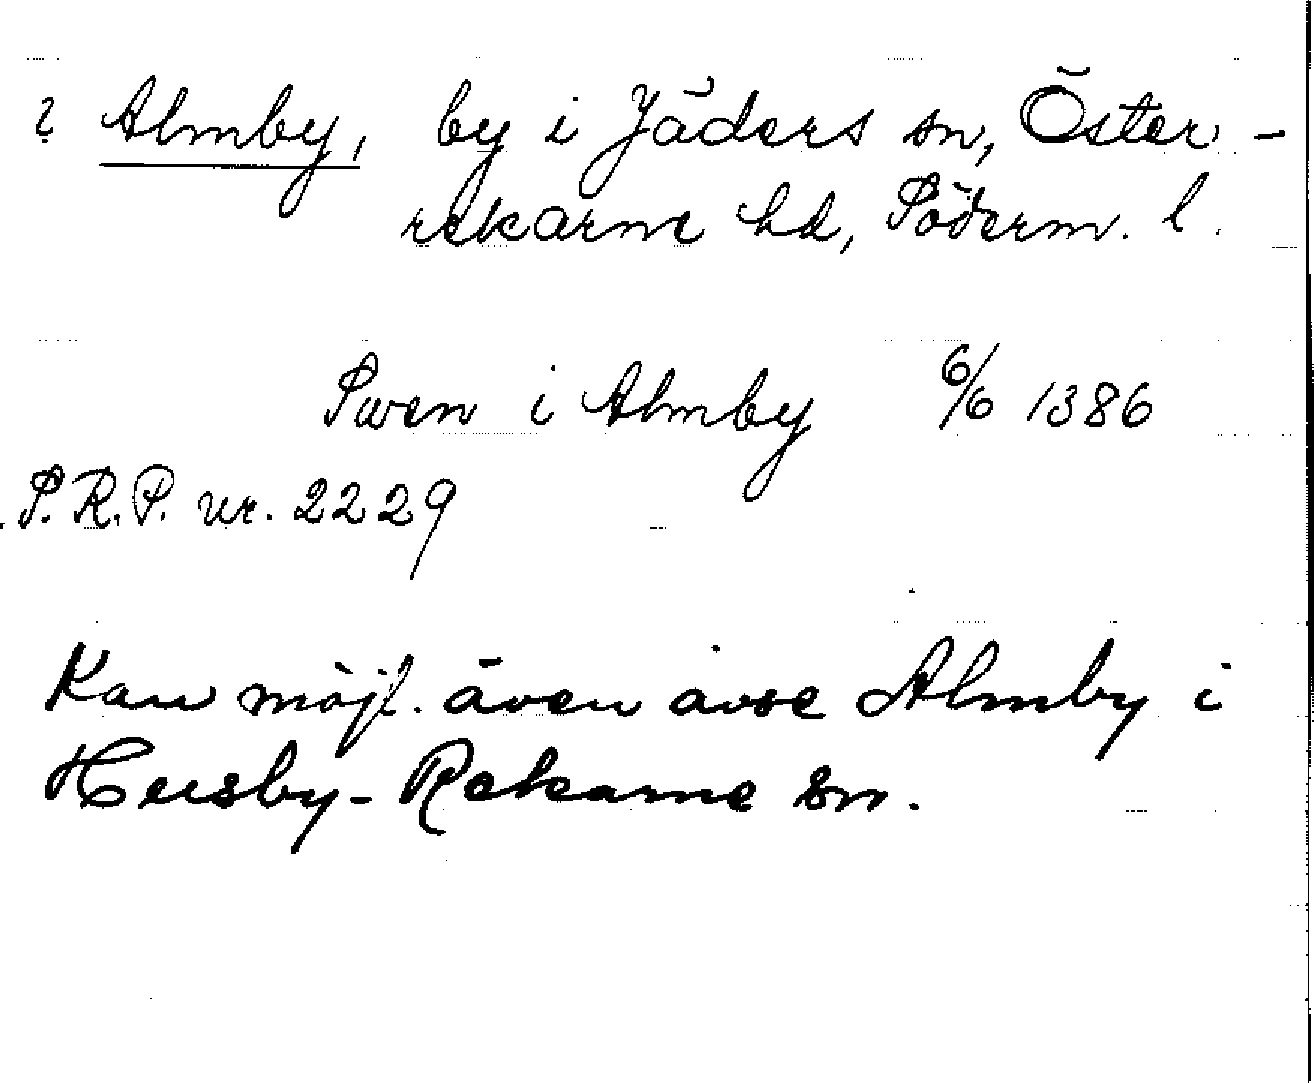 ? Almby, by i Jäders sn, Öster-
rekarne hd, Söderm. l.
Swen i Almby 6/6 1386
S.R.P. nr. 2229
Kan möjl. även avse Almby i
Husby-Rekarne sn.